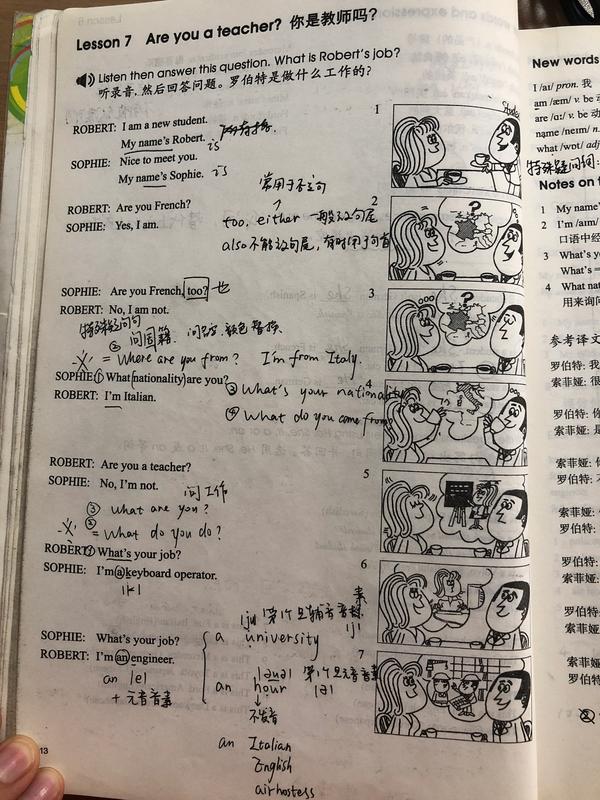 Lesson 7 Are you a teacher? 你是教师吗?
Listen then answer this question. What is Robert's job?
听录音,然后回答问题。罗伯特是做什么工作的?
1
ROBERT: I am a new student.
My name's Robert.
is
SOPHIE: Nice to meet you.
My name's Sophie. is
常用于否定句
2
ROBERT: Are you French?
too, either 一般放句尾
SOPHIE: Yes, I am.
also不能放句尾,有时用于句首
3
SOPHIE: Are you French, too? 也
ROBERT: No, I am not.
特殊疑问句
② 问国籍
= Where are you from? I'm from Italy.
4
SOPHIE: ① What nationality are you?
③ What's your nationality
ROBERT: I'm Italian.
④ What do you come from
5
ROBERT: Are you a teacher?
SOPHIE: No, I'm not.
问工作
③ what are you?
② = What do you do?
ROBERT: ① What's your job?
SOPHIE: I'm a keyboard operator.
/k/
6
/ju/ 第1个是辅音音素
/j/
SOPHIE: What's your job?
a university
ROBERT: I'm an engineer.
7
an /e/
+ 元音音素
/auə/ 第1个是元音音素
an hour
/a/
不发音
an Italian
English
airhostess
13
New words
I /aɪ/ pron. 我
am /æm/ v. be 动
are /ɑː/ v. be 动
name /neɪm/ n.
what /wɒt/ adj
特殊疑问词:
Notes on t
1 My name'
2 I'm /aɪm/
口语中经
3 What's yo
What's =
4 What nat
用来询问
参考译文
罗伯特: 我
索菲娅: 很
罗伯特: 你
索菲娅: 是
索菲娅: 你
罗伯特: 不
索菲娅:
罗伯特:
罗伯特:
索菲娅:
罗伯特:
索菲娅:
索菲娅:
罗伯特: